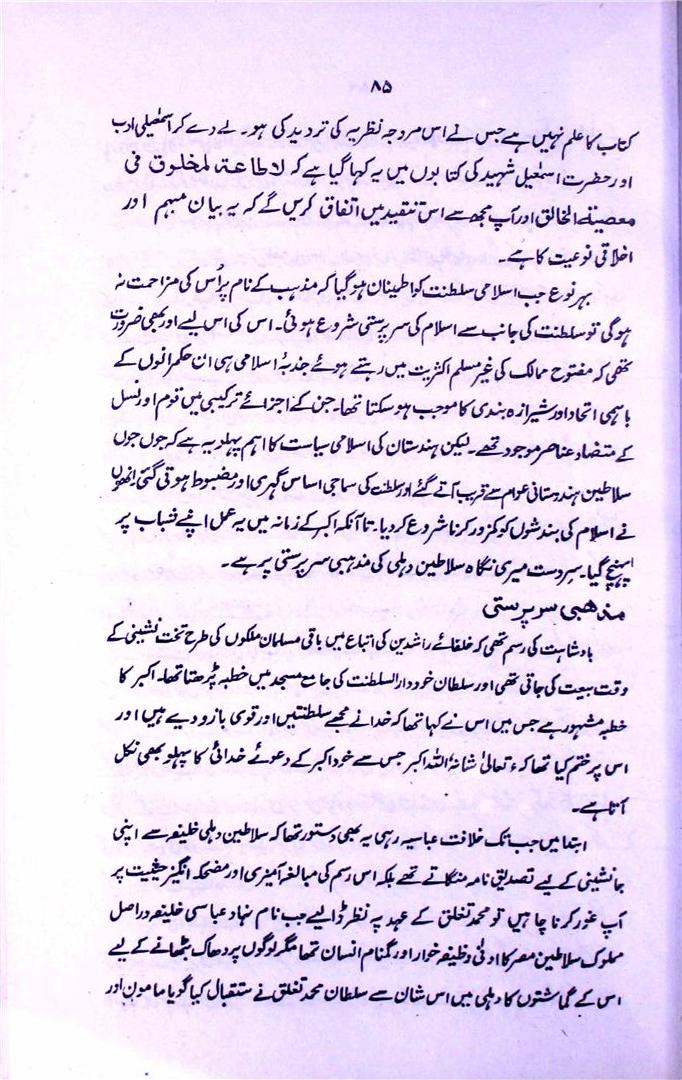 ۸۵
کتاب کا علم نہیں ہے جس نے اس مروجہ نظریہ کی تردید کی ہو۔ لے دے کر اسمٰعیلی ادب
اور حضرت اسمٰعیل شہید کی کتابوں میں یہ کہا گیا ہے کہ لا طاعۃ لمخلوق فی
معصیۃ الخالق اور آپ مجھ سے اس تنقید میں اتفاق کریں گے کہ یہ بیان مبہم اور
اخلاقی نوعیت کا ہے۔
بہر نوع جب اسلامی سلطنت کو اطمینان ہو گیا کہ مذہب کے نام پر اُس کی مزاحمت نہ
ہوگی تو سلطنت کی جانب سے اسلام کی سرپرستی شروع ہوئی۔ اس کی اس لیے اور بھی ضرورت
تھی کہ مفتوح ممالک کی غیر مسلم اکثریت میں رہتے ہوئے جذبۂ اسلامی ہی ان حکمرانوں کے
باہمی اتحاد اور شیرازہ بندی کا موجب ہو سکتا تھا۔ جن کے اجزائے ترکیبی میں قوم اور نسل
کے متضاد عناصر موجود تھے۔ لیکن ہندستان کی اسلامی سیاست کا اہم پہلو یہ ہے کہ جوں جوں
سلاطین ہندوستانی عوام سے قریب آتے گئے اور سلطنت کی سماجی اساس گہری اور مضبوط ہوتی گئی انھوں
نے اسلام کی بندشوں کو کمزور کرنا شروع کر دیا۔ تا آنکہ اکبر کے زمانہ میں یہ عمل اپنے شباب پر
پہنچ گیا۔ سردست میری نگاہ سلاطین دہلی کی مذہبی سرپرستی پر ہے۔
مذھبی سرپرستی
بادشاہت کی رسم تھی کہ خلفائے راشدین کی اتباع میں باقی مسلمان ملکوں کی طرح تخت نشینی کے
وقت بیعت کی جاتی تھی اور سلطان خود دارالسلطنت کی جامع مسجد میں خطبہ پڑھتا تھا۔ اکبر کا
خطبہ مشہور ہے جس میں اس نے کہا تھا کہ خدا نے مجھے سلطنتیں اور قوی بازو دیے ہیں اور
اس پر ختم کیا تھا کہ ء تعالیٰ شانہٗ اللہ اکبر جس سے خود اکبر کے دعوئے خدائی کا پہلو بھی نکل
آتا ہے۔
ابتدا میں جب تک خلافت عباسیہ رہی یہ بھی دستور تھا کہ سلاطین دہلی خلیفہ سے اپنی
جانشینی کے لیے تصدیق نامہ منگاتے تھے بلکہ اس رسم کی مبالغہ آمیزی اور مضحکہ انگیز حیثیت پر
آپ غور کرنا چاہیں تو محمد تغلق کے عہد پہ نظر ڈالیے جب نام نہاد عباسی خلیفہ دراصل
مملوک سلاطین مصر کا ادنیٰ وظیفہ خوار اور گمنام انسان تھا مگر لوگوں پر دھاک بٹھانے کے لیے
اس کے گماشتوں کا دہلی میں اس شان سے سلطان محمد تغلق نے ستقبال کیا گویا مامون اور